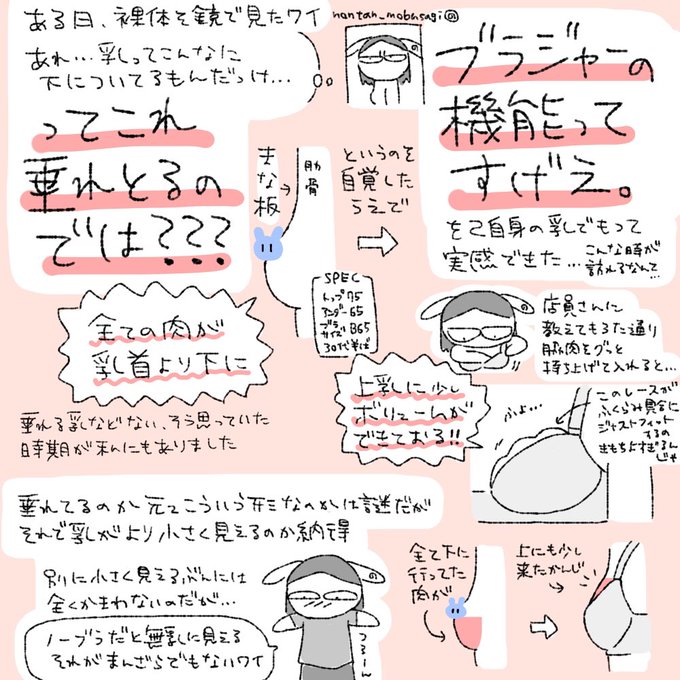 ある日、裸体を鏡で見たワイ
nontan_mobusagi@の
あれ…乳ってこんなに
下についてるもんだっけ…
ってこれ
垂れとるの
では???
全ての肉が
乳首より下に
垂れる乳などない、そう思っていた
時期が私にもありました
まな板
肋骨
SPEC
トップ75
アンダー65
ブラ
サイズB65
30代半ば
というのを
自覚した
うえで
ブラジャーの
機能って
すげえ。
を己自身の乳でもって
実感できた…
こんな時が
訪れるなんて…
店員さんに
教えてもろた通り
脇肉をグッと
持ち上げて入れると…
上乳に少し
ボリュームが
できておる!!
ふょ…
このレースが
ふくらみ具合に
ジャストフィット
するの
きもちよすぎるん
じゃ
垂れてるのか元々こういう形なのかは謎だが
それで乳がより小さく見えるのか納得
別に小さく見えるぶんには
全くかまわないのだが…
ノーブラだと無乳に見える
それがまんざらでもないワイ
の
つるーん
全て下に
行ってた
肉が
上にも少し
来たかんじ